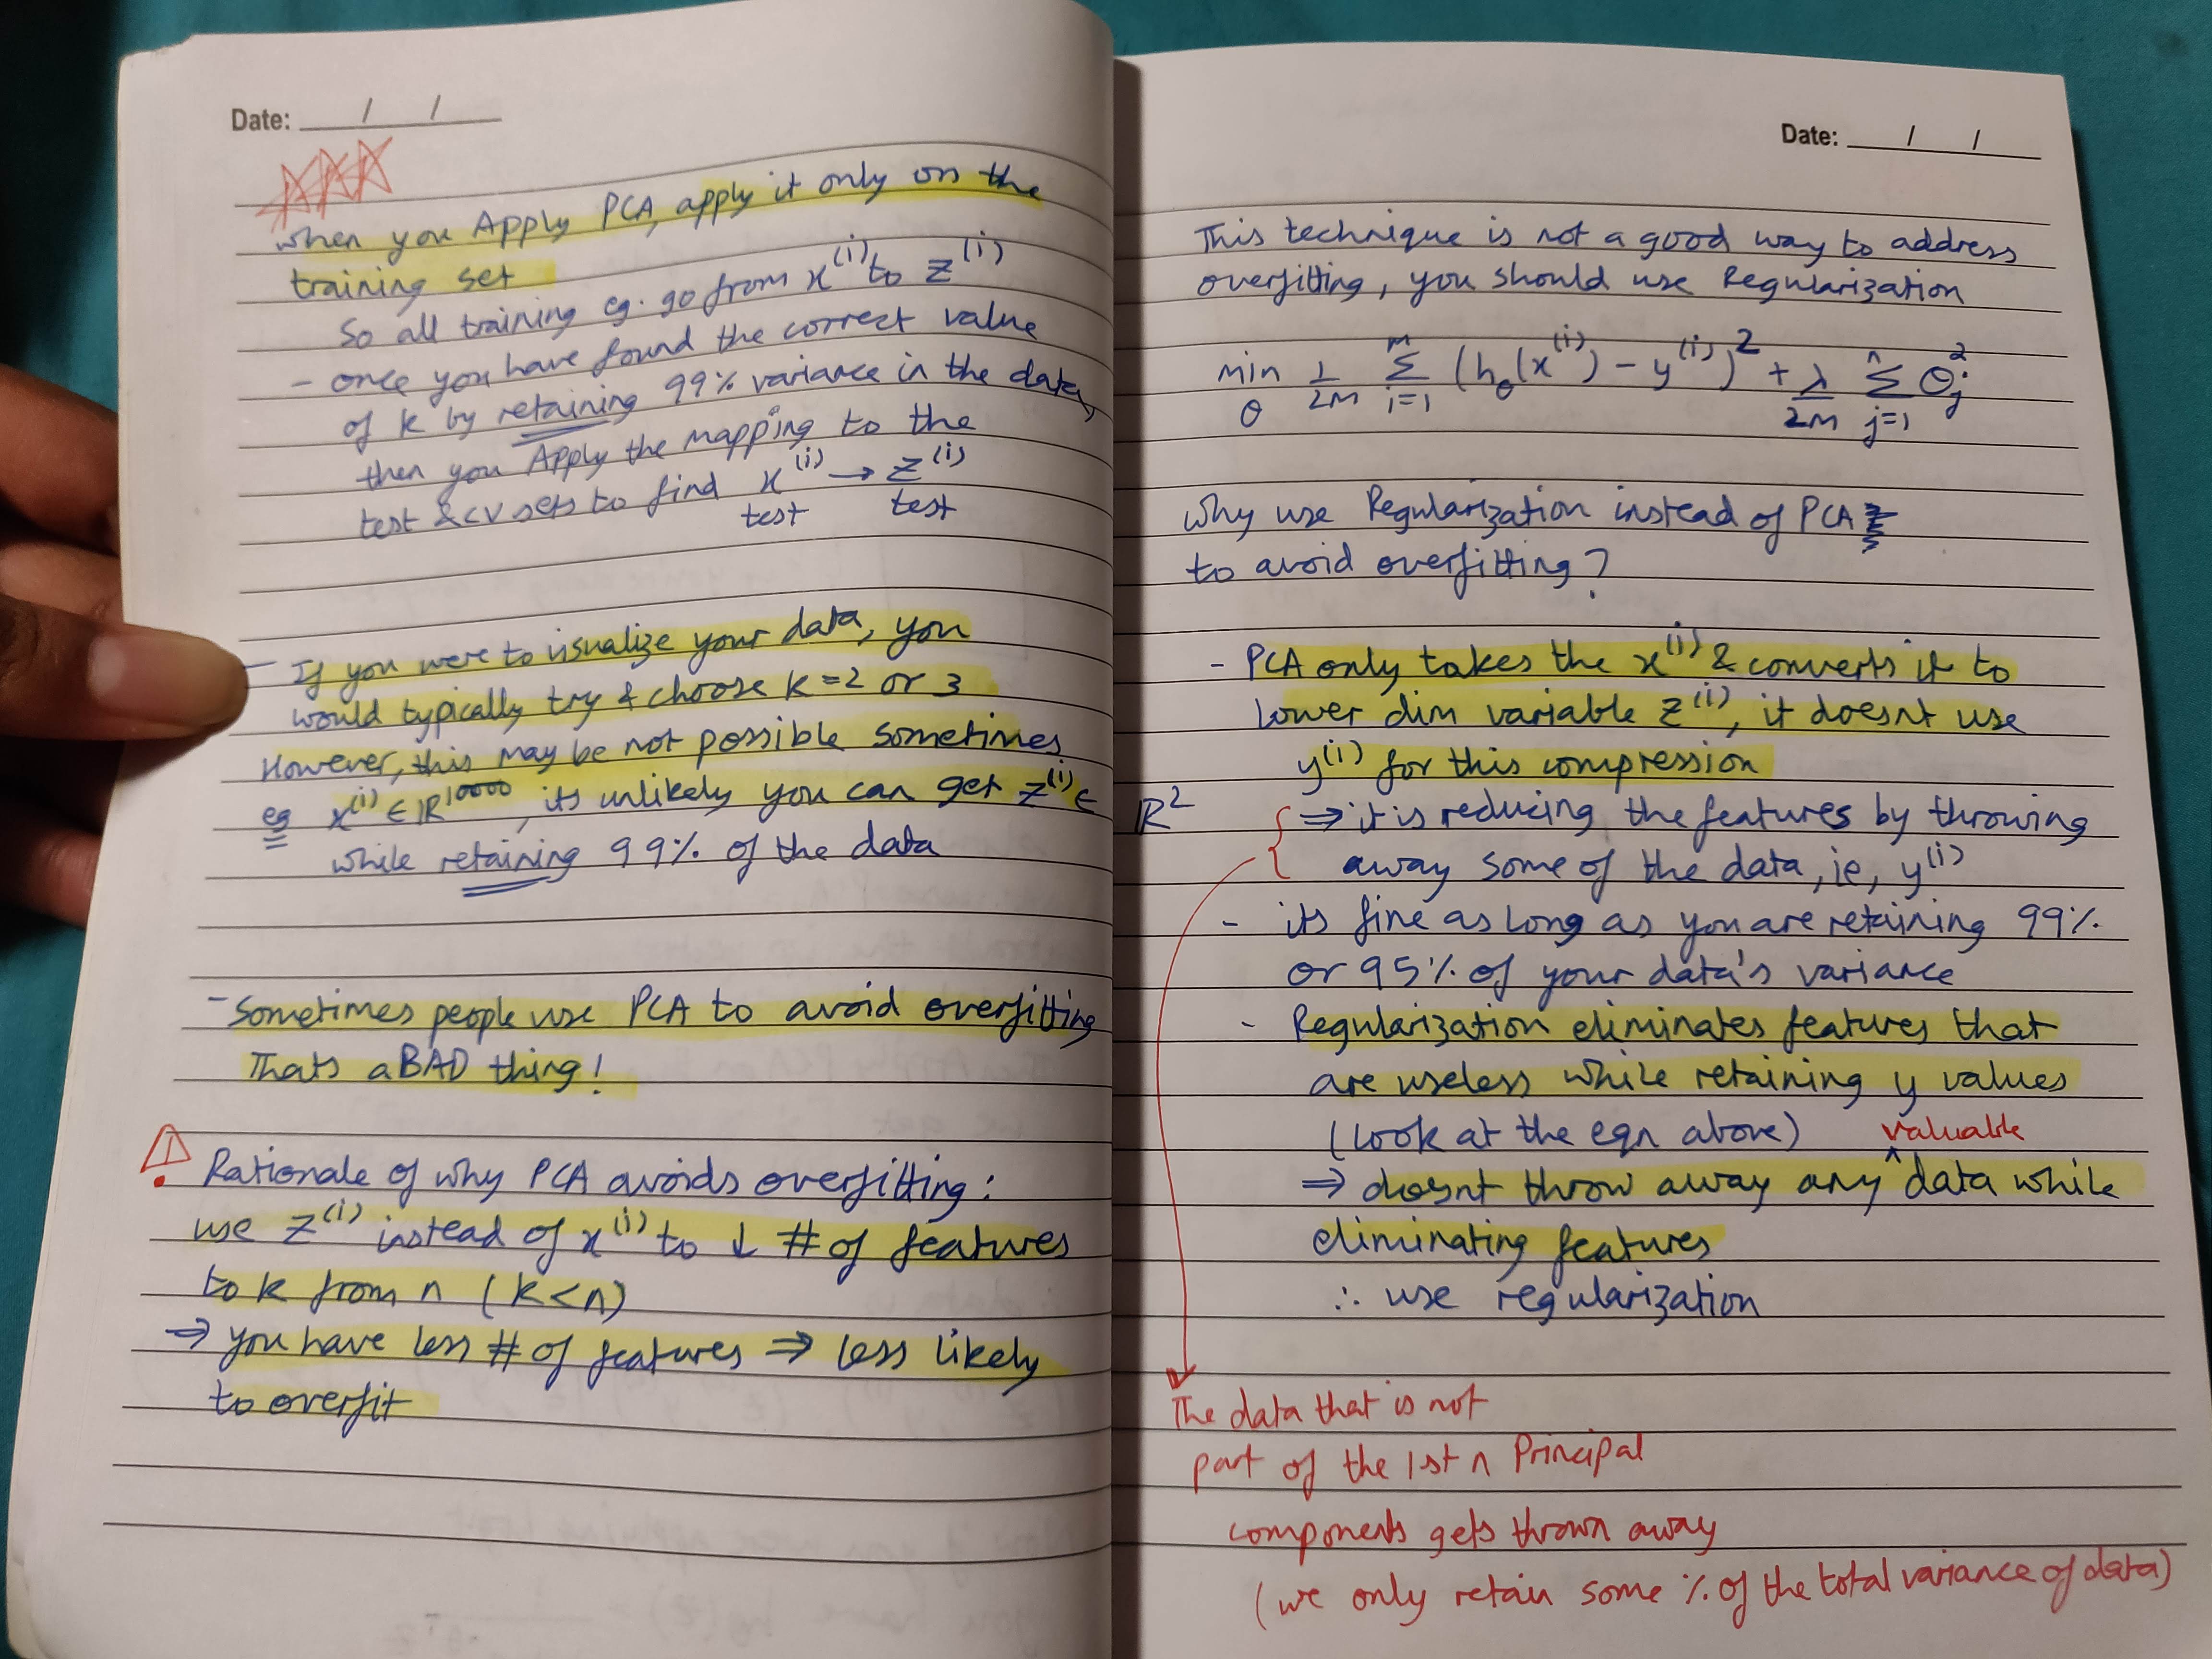 Date: / /
when you Apply PCA, apply it only on the
training set
So all training eg. go from x^(i) to z^(i)
- once you have found the correct value
of k by retaining 99% variance in the data,
then you Apply the mapping to the
test & cv sets to find x^(i) → z^(i)
test test
- If you were to visualize your data, you
would typically try & choose k=2 or 3
However, this may be not possible sometimes
eg x^(i) ∈ ℝ^10000, its unlikely you can get z^(i) ∈ ℝ^2
while retaining 99% of the data
- Sometimes people use PCA to avoid overfitting
Thats a BAD thing!
Rationale of why PCA avoids overfitting:
use z^(i) instead of x^(i) to ↓ # of features
to k from n (k<n)
⇒ you have less # of features ⇒ less likely
to overfit
Date: / /
This technique is not a good way to address
overfitting, you should use Regularization
min_θ 1/2m Σ_{i=1}^m (h_θ(x^(i)) - y^(i))^2 + λ/2m Σ_{j=1}^n θ_j^2
Why use Regularization instead of PCA
to avoid overfitting?
- PCA only takes the x^(i) & converts it to
lower dim variable z^(i), it doesnt use
y^(i) for this compression
⇒ it is reducing the features by throwing
away some of the data, ie, y^(i)
- its fine as long as you are retaining 99%
or 95% of your data's variance
- Regularization eliminates features that
are useless while retaining y values
(look at the eqn above)
⇒ doesnt throw away any valuable data while
eliminating features
∴ use regularization
The data that is not
part of the 1st n Principal
components gets thrown away
(we only retain some % of the total variance of data)